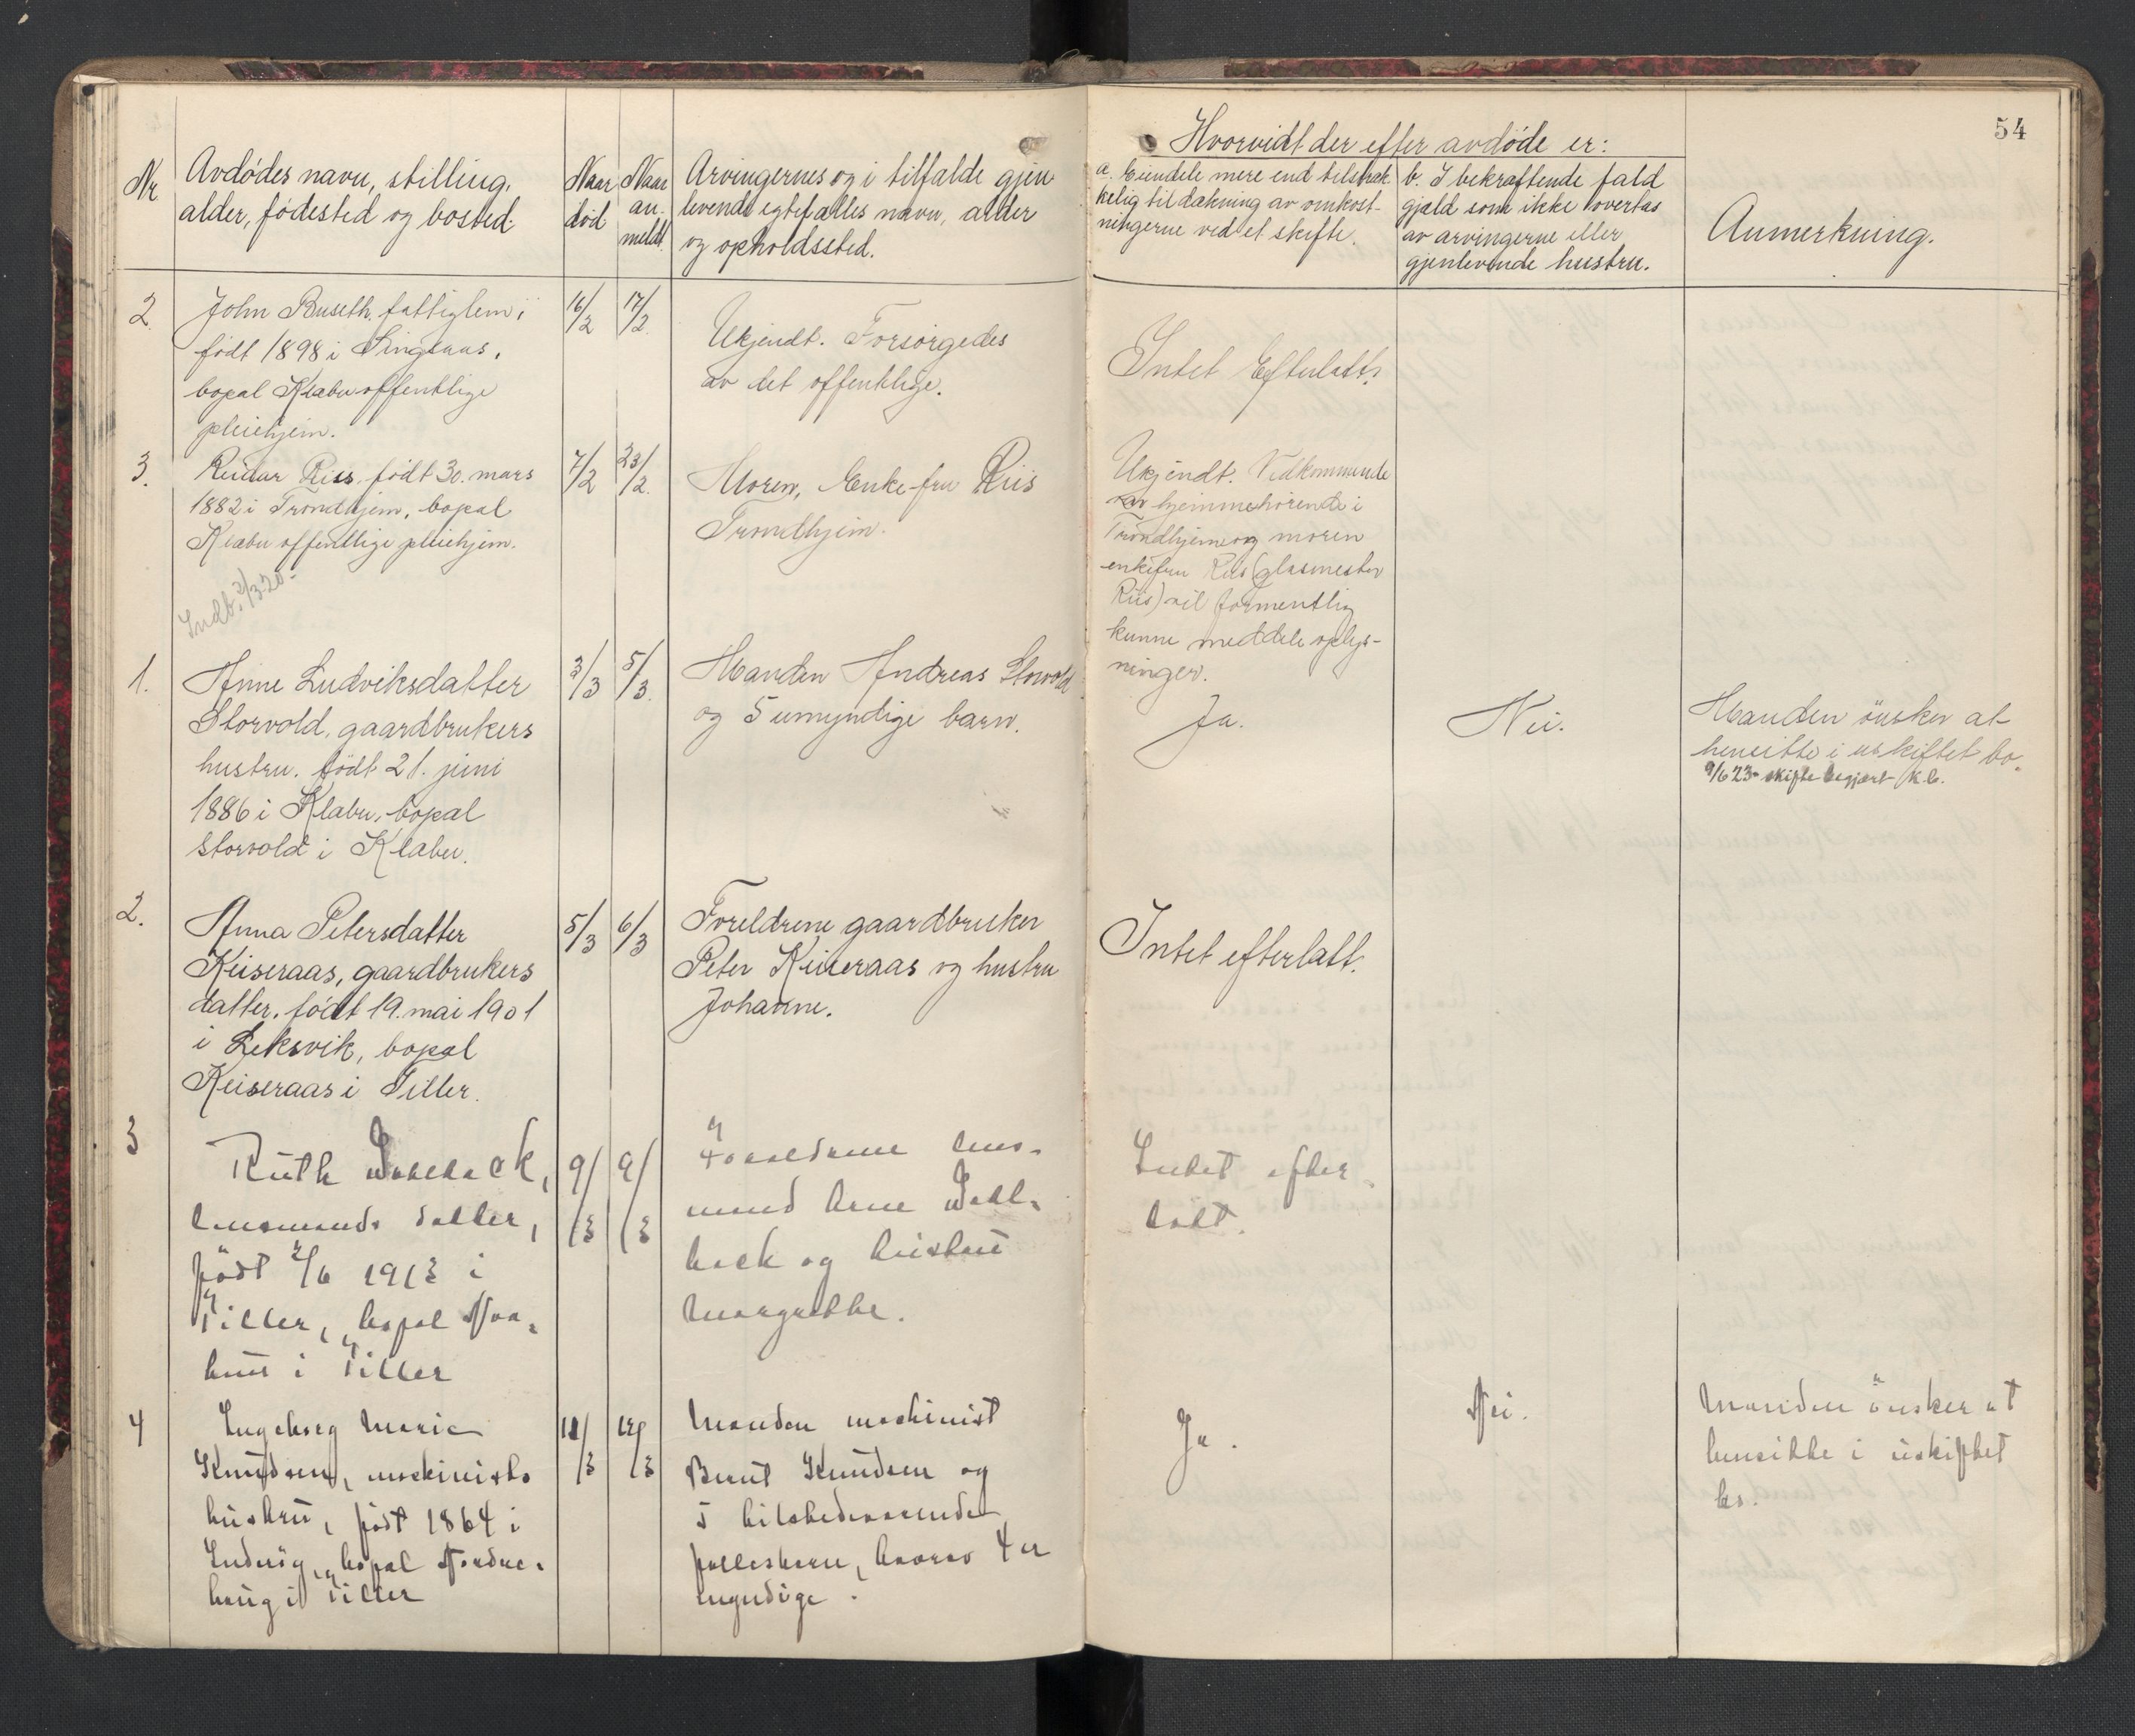 54
Hvorvidt der efter avdøde er:
Nr
Avdødes navn, stilling,
alder, fødested og bosted.
Naar
død
Naar
an-
meldt.
Arvingernes og i tilfælde gjen
levende egtefælles navn, alder
og opholdssted.
a. Eiendele mere end tilstræk
kelig til dækning av omkost-
ningerne ved et skifte.
b. I bekræftende fald
gjæld som ikke overtas
av arvingerne eller
gjenlevende hustru.
Anmerkning.
2.
John Buseth, fattiglem,
født 1898 i Singsaas,
bopæl Klæbu offentlige
pleiehjem.
16/2
17/2.
Ukjendt. Forsørgedes
av det offentlige.
Intet Efterlatt.
3.
Reidar Riis, født 30. mars
1882 i Trondhjem, bopæl
Klæbu offentlige pleiehjem.
7/2
23/2.
Moren, Enke-fru Riis
Trondhjem.
Ukjendt. Vedkommende
var hjemmehørende i
Trondhjem og moren
enkefru Riis (glasmester
Riis) vil formentlig
kunne meddele oplys-
ninger.
Indb. 2/3-20-
1.
Anne Ludviksdatter
Storvold, gaardbrukers
hustru. født 21. juni
1886 i Klæbu, bopæl
Storvold i Klæbu.
3/3
5/3.
Manden Andreas Storvold
og 5 umyndige barn.
Ja.
Nei.
Manden ønsker at
hensitte i uskiftet bo.
9/6 23- skifte begjært K.b.
2.
Anna Petersdatter
Keiseraas, gaardbrukers
datter, født 19. mai 1901
i Leksvik, bopæl
Keiseraas i Tiller.
5/3
6/3
Foreldrene gaardbruker
Peter Keiseraas og hustru
Johanne.
Intet efterlatt.
3
Ruth
husmands datter,
født 2/6 1913 i
Tiller, bopæl
i Tiller
9/3
9/3
Forældrene hus-
mand Arne Dahl-
back og hustru
Margrethe.
Intet efter-
latt.
4
Ingeborg Marie
Knudsen, maskinists
hustru, født 1864 i
Inderøy, bopæl
i Tiller
11/3
12/3
Manden maskinist
Bernt Knudsen og
5 tilstedeværende
fællesbarn, hvorav 4 er
myndige.
Ja.
Nei.
Manden ønsker at
hensitte i uskiftet
bo.